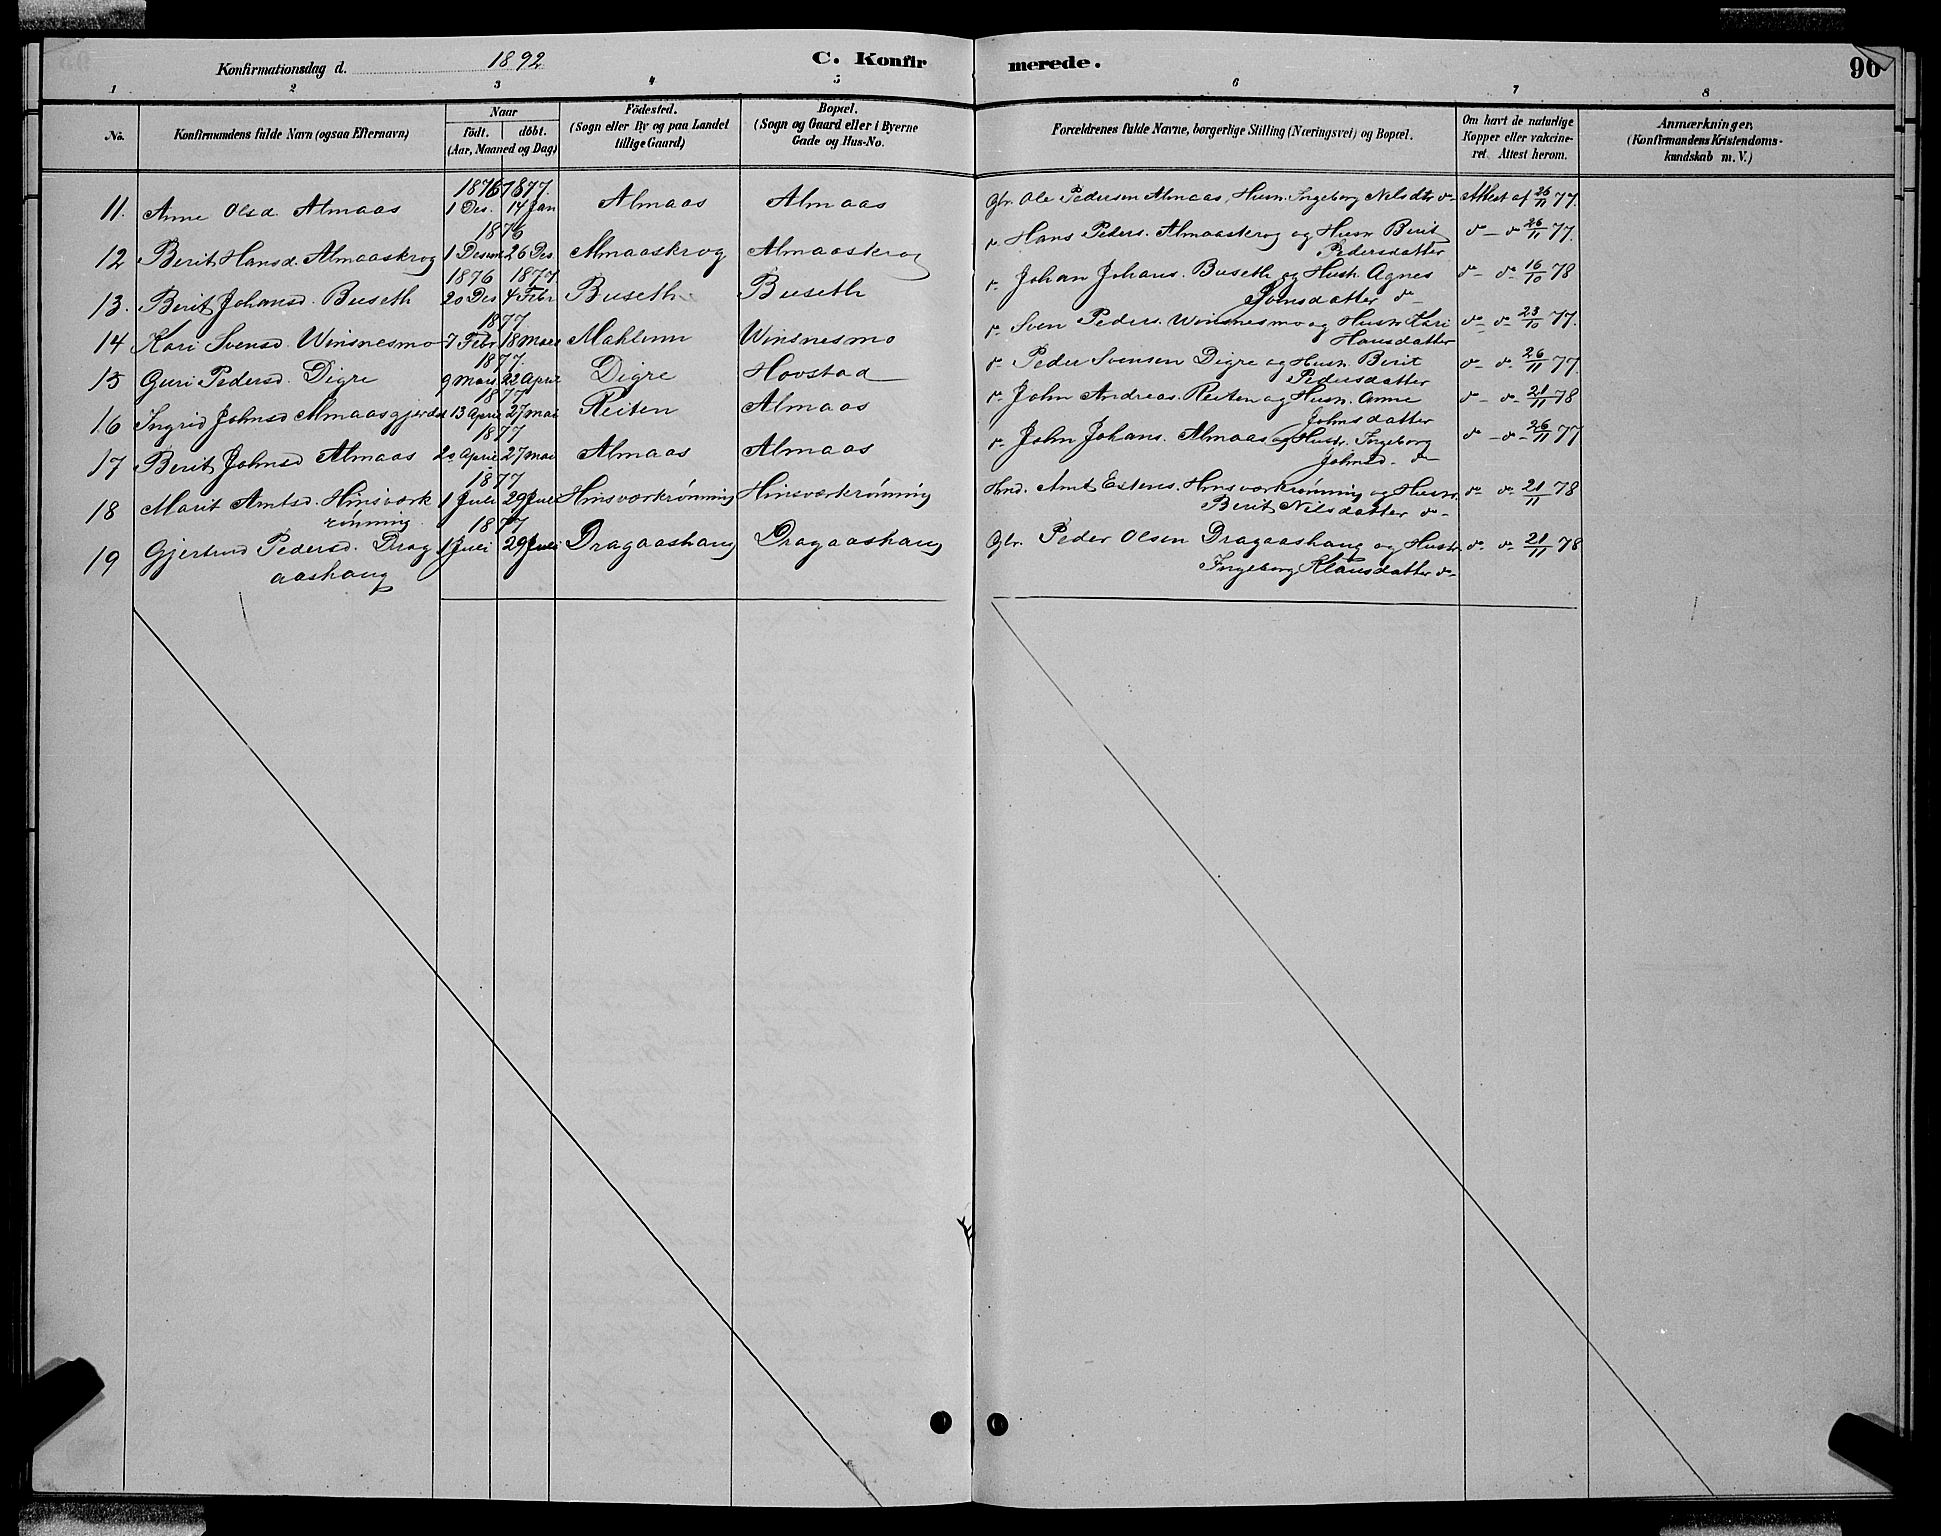 Konfirmationsdag d. 1892 C. Konfirmerede. 96
1 2 3 4 5 6 7 8
No.
Konfirmandens fulde Navn (ogsaa Efternavn)
Naar
födt. döbt.
(Aar, Maaned og Dag)
Födested.
(Sogn eller By og paa Landet
tillige Gaard)
Bopæl.
(Sogn og Gaard eller i Byerne
Gade og Hus-No.
Forældrenes fulde Navne, borgerlige Stilling (Næringsvei) og Bopæl.
Om havt de naturlige
Kopper eller vakcine-
ret. Attest herom.
Anmærkninger,
(Konfirmandens Kristendoms-
kundskab m. V.)
1876 1877.
11. Anne Olsd. Almaas 1 Des. 14 Jan Almaas Almaas Gbr. Ole Pedersen Almaas, Hustr. Ingeborg Nilsdtr do- Attest af 26/11 77.
1876
12 Berit Hansd. Almaaskrog 1 Desem 26 Des Almaaskrog Almaaskrog do Hans Peders. Almaaskrog og Hustr Berit do - do 26/11 77.
Pedersdatter
1876 1877
13. Berit Johansd. Buseth 20 Des 4 Febr Buseth Buseth do Johan Johans. Buseth og Hustr. Agnes do- do- 16/10 78
Svensdatter do-
1877
14 Kari Svensd. Winsnesmo 7 Febr 18 Mars Mahlum Winsnesmo do Sven Peders. Winsnesmo og Hustr. Kari do- do- 23/10 77.
Hansdatter
1877.
15 Guri Pedersd. Digre 9 Mars 22 April Digre Hovstad do- Peder Svensen Digre og Hustr. Berit do- do- 26/11 77
Pedersdatter
1877
16 Ingrid Johnsd Almaasgjerdet 13 April 27 Mai Reiten Almaas do- John Andreas. Reiten og Hustr. Anne do- do- 21/11 78
Johnsdatter
1877
17 Berit Johnsd Almaas 20 April 27 Mai Almaas Almaas do- John Johans. Almaas og Hustr. Ingeborg do - do- 26/11 77
Johnsd. do-
1877
18 Marit Arntsd. Hinsværk 1 Juli 29 Juli Hinsværkrönning Hinsværkrönning Hmd. Arnt Estens. Hinsværkrönning og Hustr. do- do- 21/11 78
rönning. Berit Nilsdatter do-
1877
19 Gjertrud Pedersd. Drag 1 Juli 29 Juli Dragaashaug Dragaashaug Gbr. Peder Olsen Dragaashaug og Hustr. do- do- 21/11 78
aashaug Ingeborg Klausdatter do-